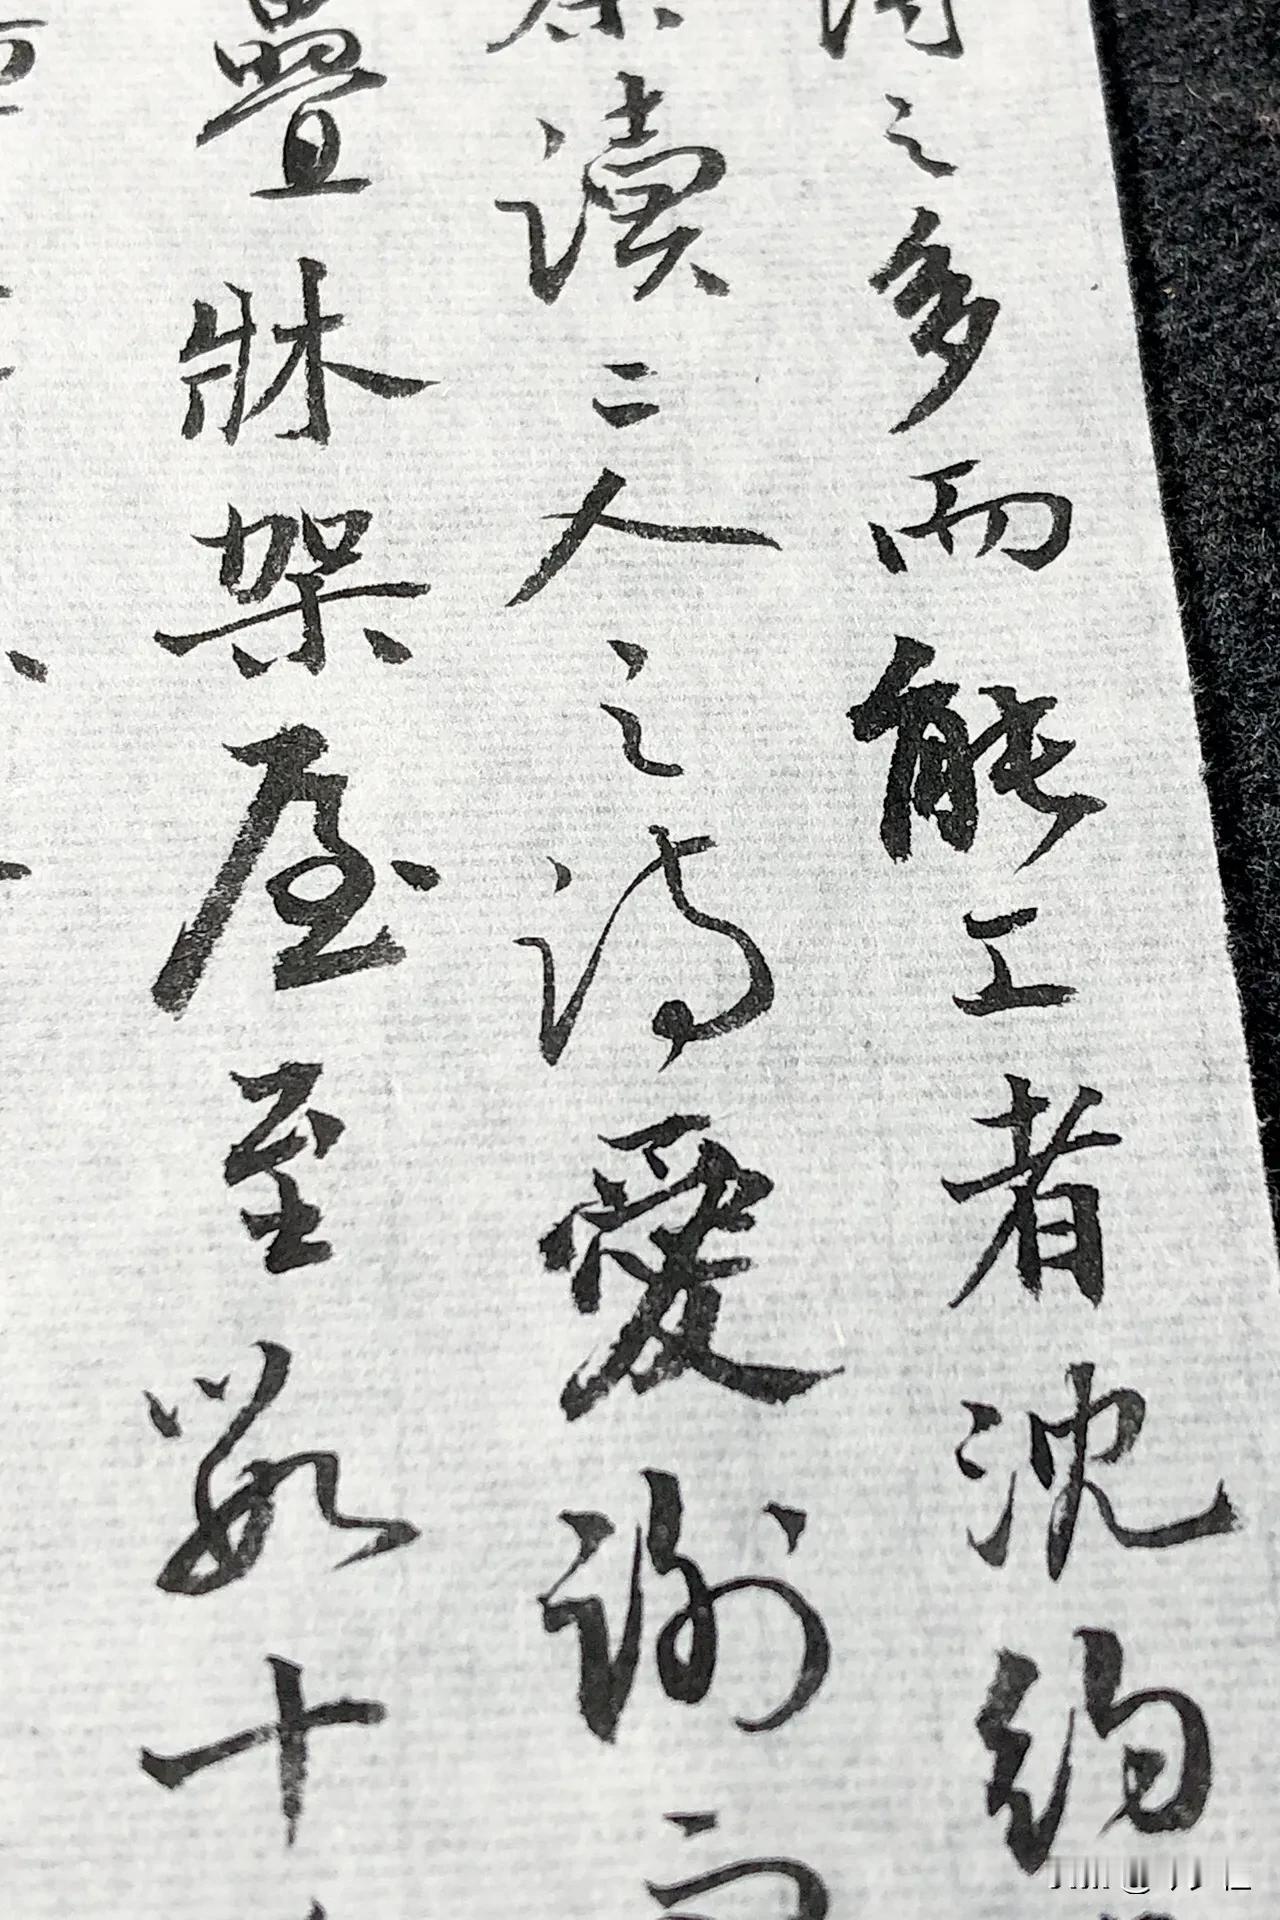 之多而能工者沈約
讀二人之詩愛謝而
疊牀架屋至數十